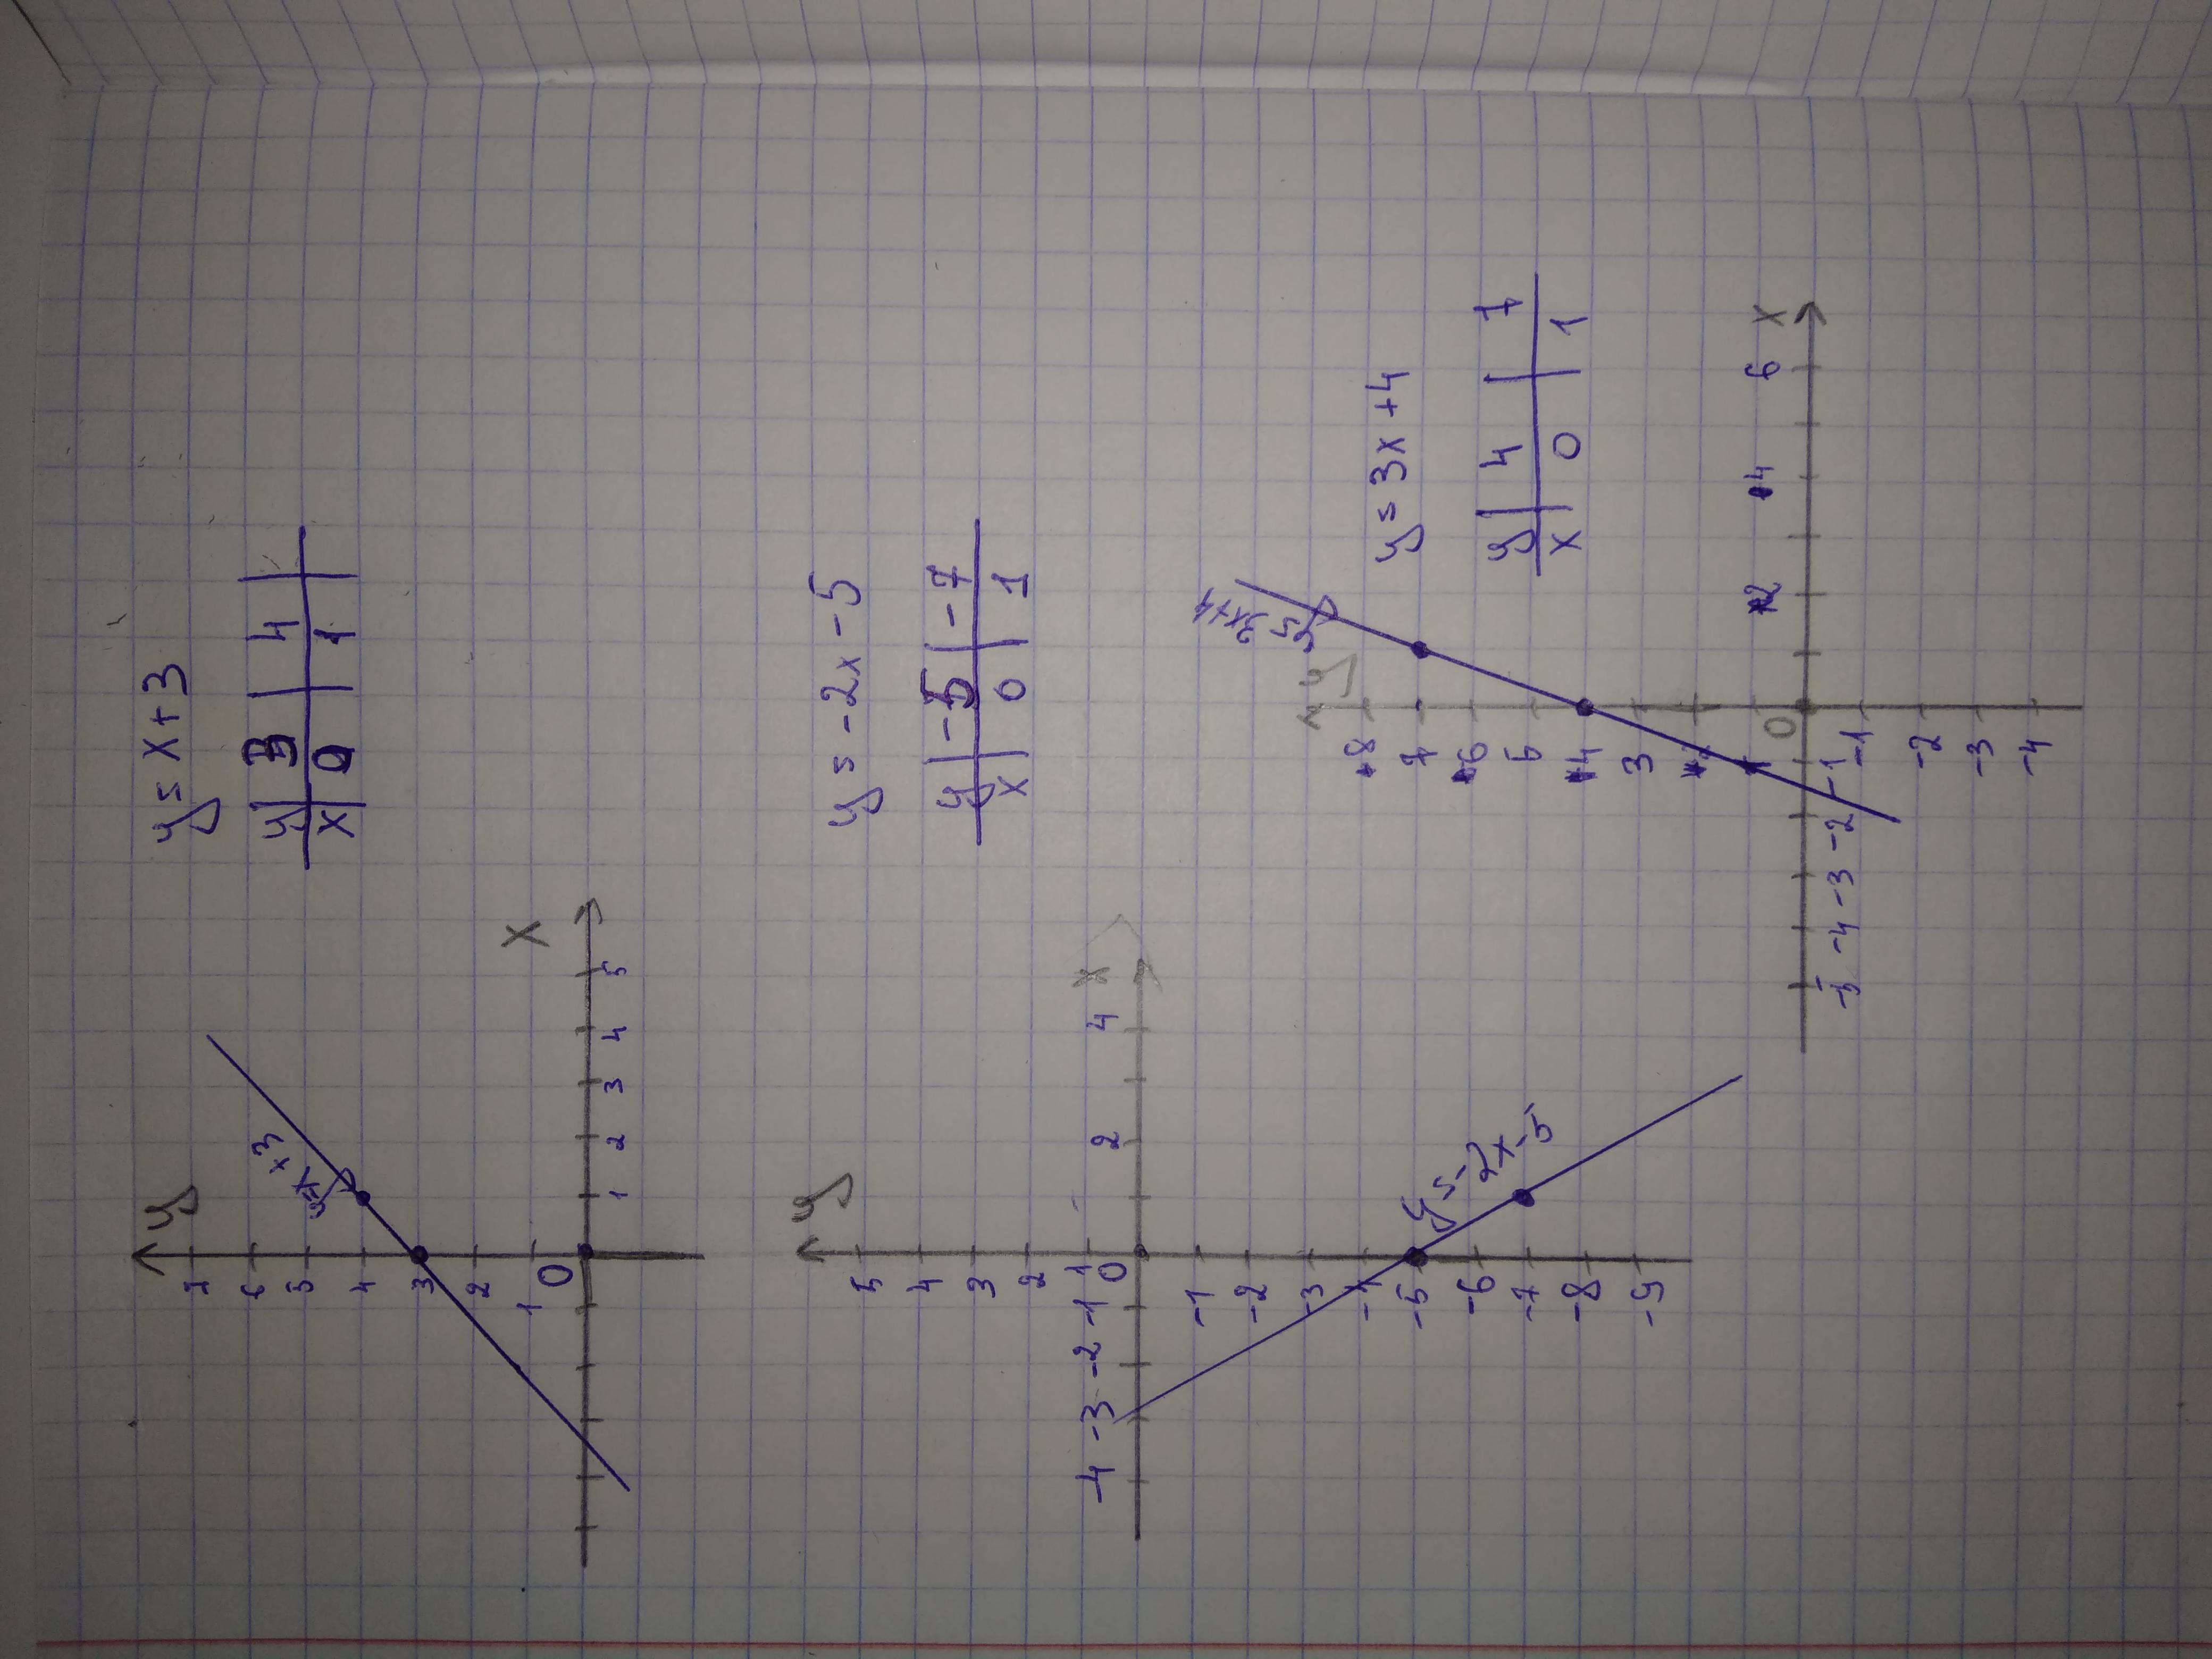 y = x + 3
y 3 4
x 0 1
y
7
6
5
4
3
2
1
0
1 2 3 4 5
x
y = x + 3
y = -2x - 5
y -5 -7
x 0 1
y
5
4
3
2
1
0
-4 -3 -2 -1
2 4
x
-1
-2
-3
-5
-6
-7
-8
-9
y = -2x - 5
y = 3x + 4
y 4 7
x 0 1
y
8
7
6
5
4
3
0
2 4 6
x
-5 -4 -3 -2 -1
-1
-2
-3
-4
y = 3x + 4